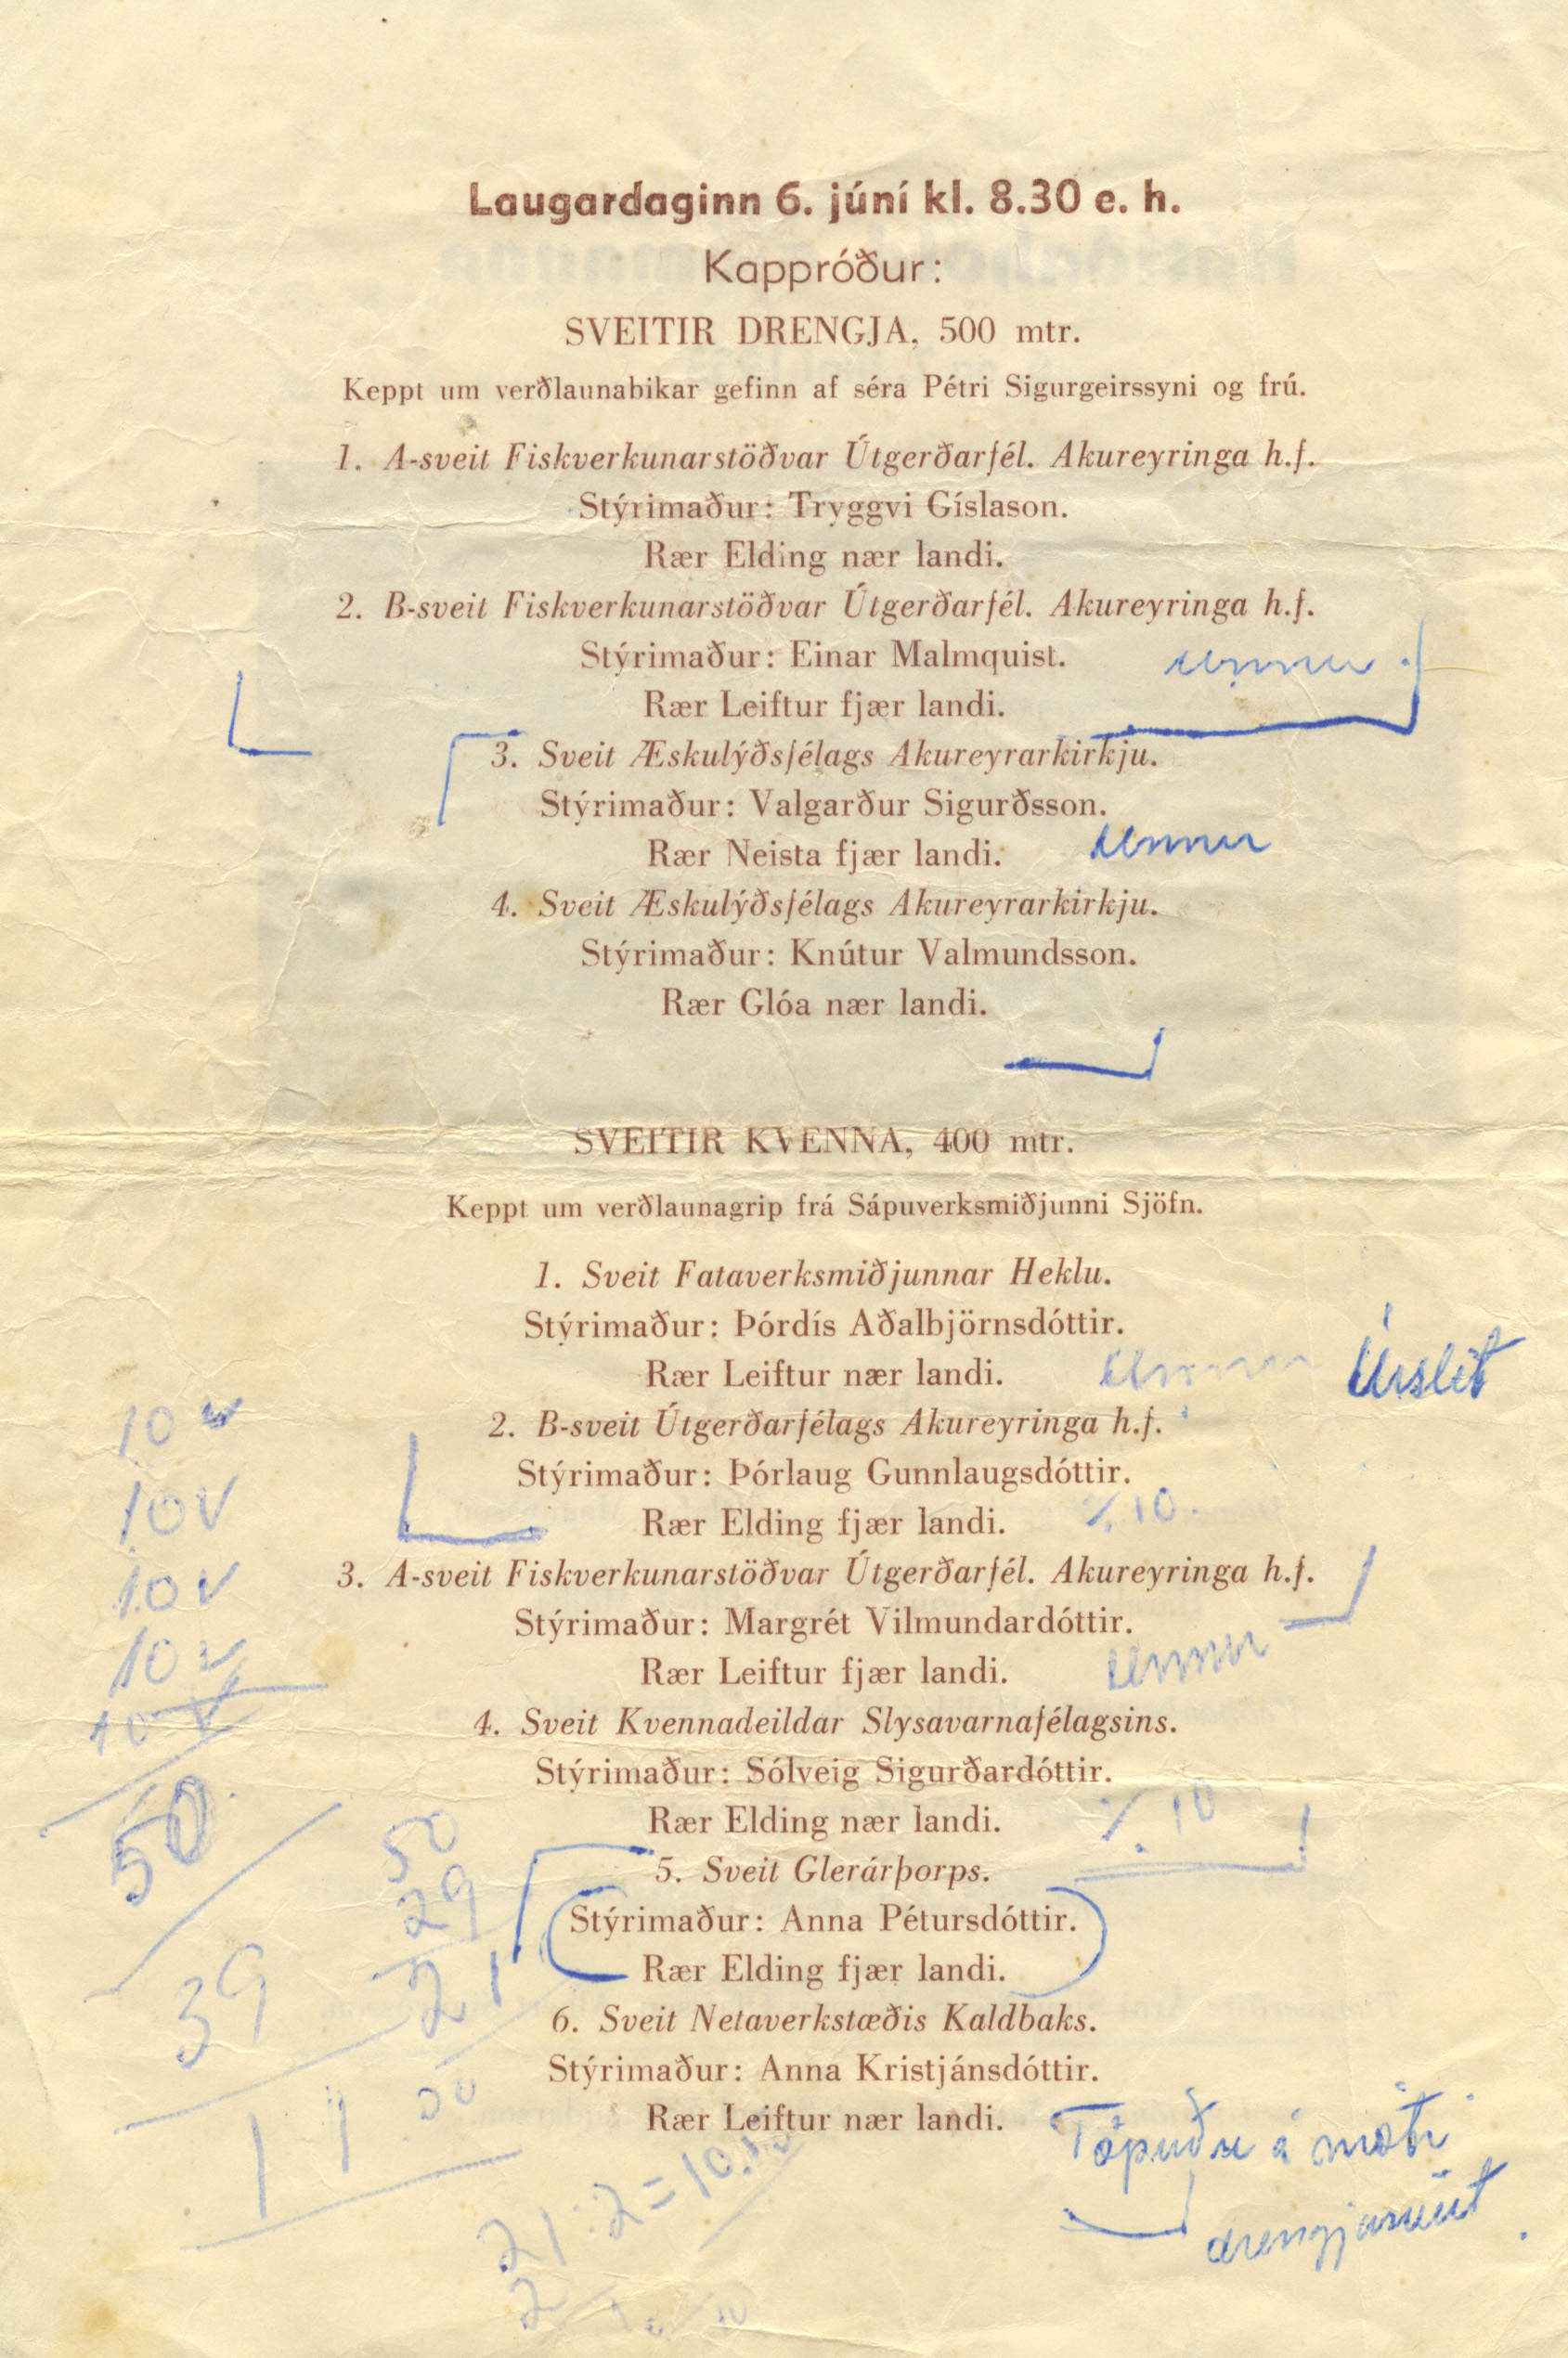 Laugardaginn 6. júní kl. 8.30 e. h.
Kappróður:
SVEITIR DRENGJA, 500 mtr.
Keppt um verðlaunabikar gefinn af séra Pétri Sigurgeirssyni og frú.
1. A-sveit Fiskverkunarstöðvar Útgerðarfél. Akureyringa h.f.
Stýrimaður: Tryggvi Gíslason.
Rær Elding nær landi.
2. B-sveit Fiskverkunarstöðvar Útgerðarfél. Akureyringa h.f.
Stýrimaður: Einar Malmquist. Unnu
Rær Leiftur fjær landi.
3. Sveit Æskulýðsfélags Akureyrarkirkju.
Stýrimaður: Valgarður Sigurðsson.
Rær Neista fjær landi. Unnu
4. Sveit Æskulýðsfélags Akureyrarkirkju.
Stýrimaður: Knútur Valmundsson.
Rær Glóa nær landi.
SVEITIR KVENNA, 400 mtr.
Keppt um verðlaunagrip frá Sápuverksmiðjunni Sjöfn.
1. Sveit Fataverksmiðjunnar Heklu.
Stýrimaður: Þórdís Aðalbjörnsdóttir.
Rær Leiftur nær landi. Unnu Úrslit
2. B-sveit Útgerðarfélags Akureyringa h.f.
Stýrimaður: Þórlaug Gunnlaugsdóttir.
Rær Elding fjær landi. % 10.
3. A-sveit Fiskverkunarstöðvar Útgerðarfél. Akureyringa h.f.
Stýrimaður: Margrét Vilmundardóttir.
Rær Leiftur fjær landi. Unnu
4. Sveit Kvennadeildar Slysavarnafélagsins.
Stýrimaður: Sólveig Sigurðardóttir.
Rær Elding nær landi. % 10
5. Sveit Glerárþorps.
Stýrimaður: Anna Pétursdóttir.
Rær Elding fjær landi.
6. Sveit Netaverkstæðis Kaldbaks.
Stýrimaður: Anna Kristjánsdóttir.
Rær Leiftur nær landi. Töpuðu á móti
drengjasveit
10 v
10 v
10 v
10 v
10 v
50
39
11
50
29
21
21:2=10.
2